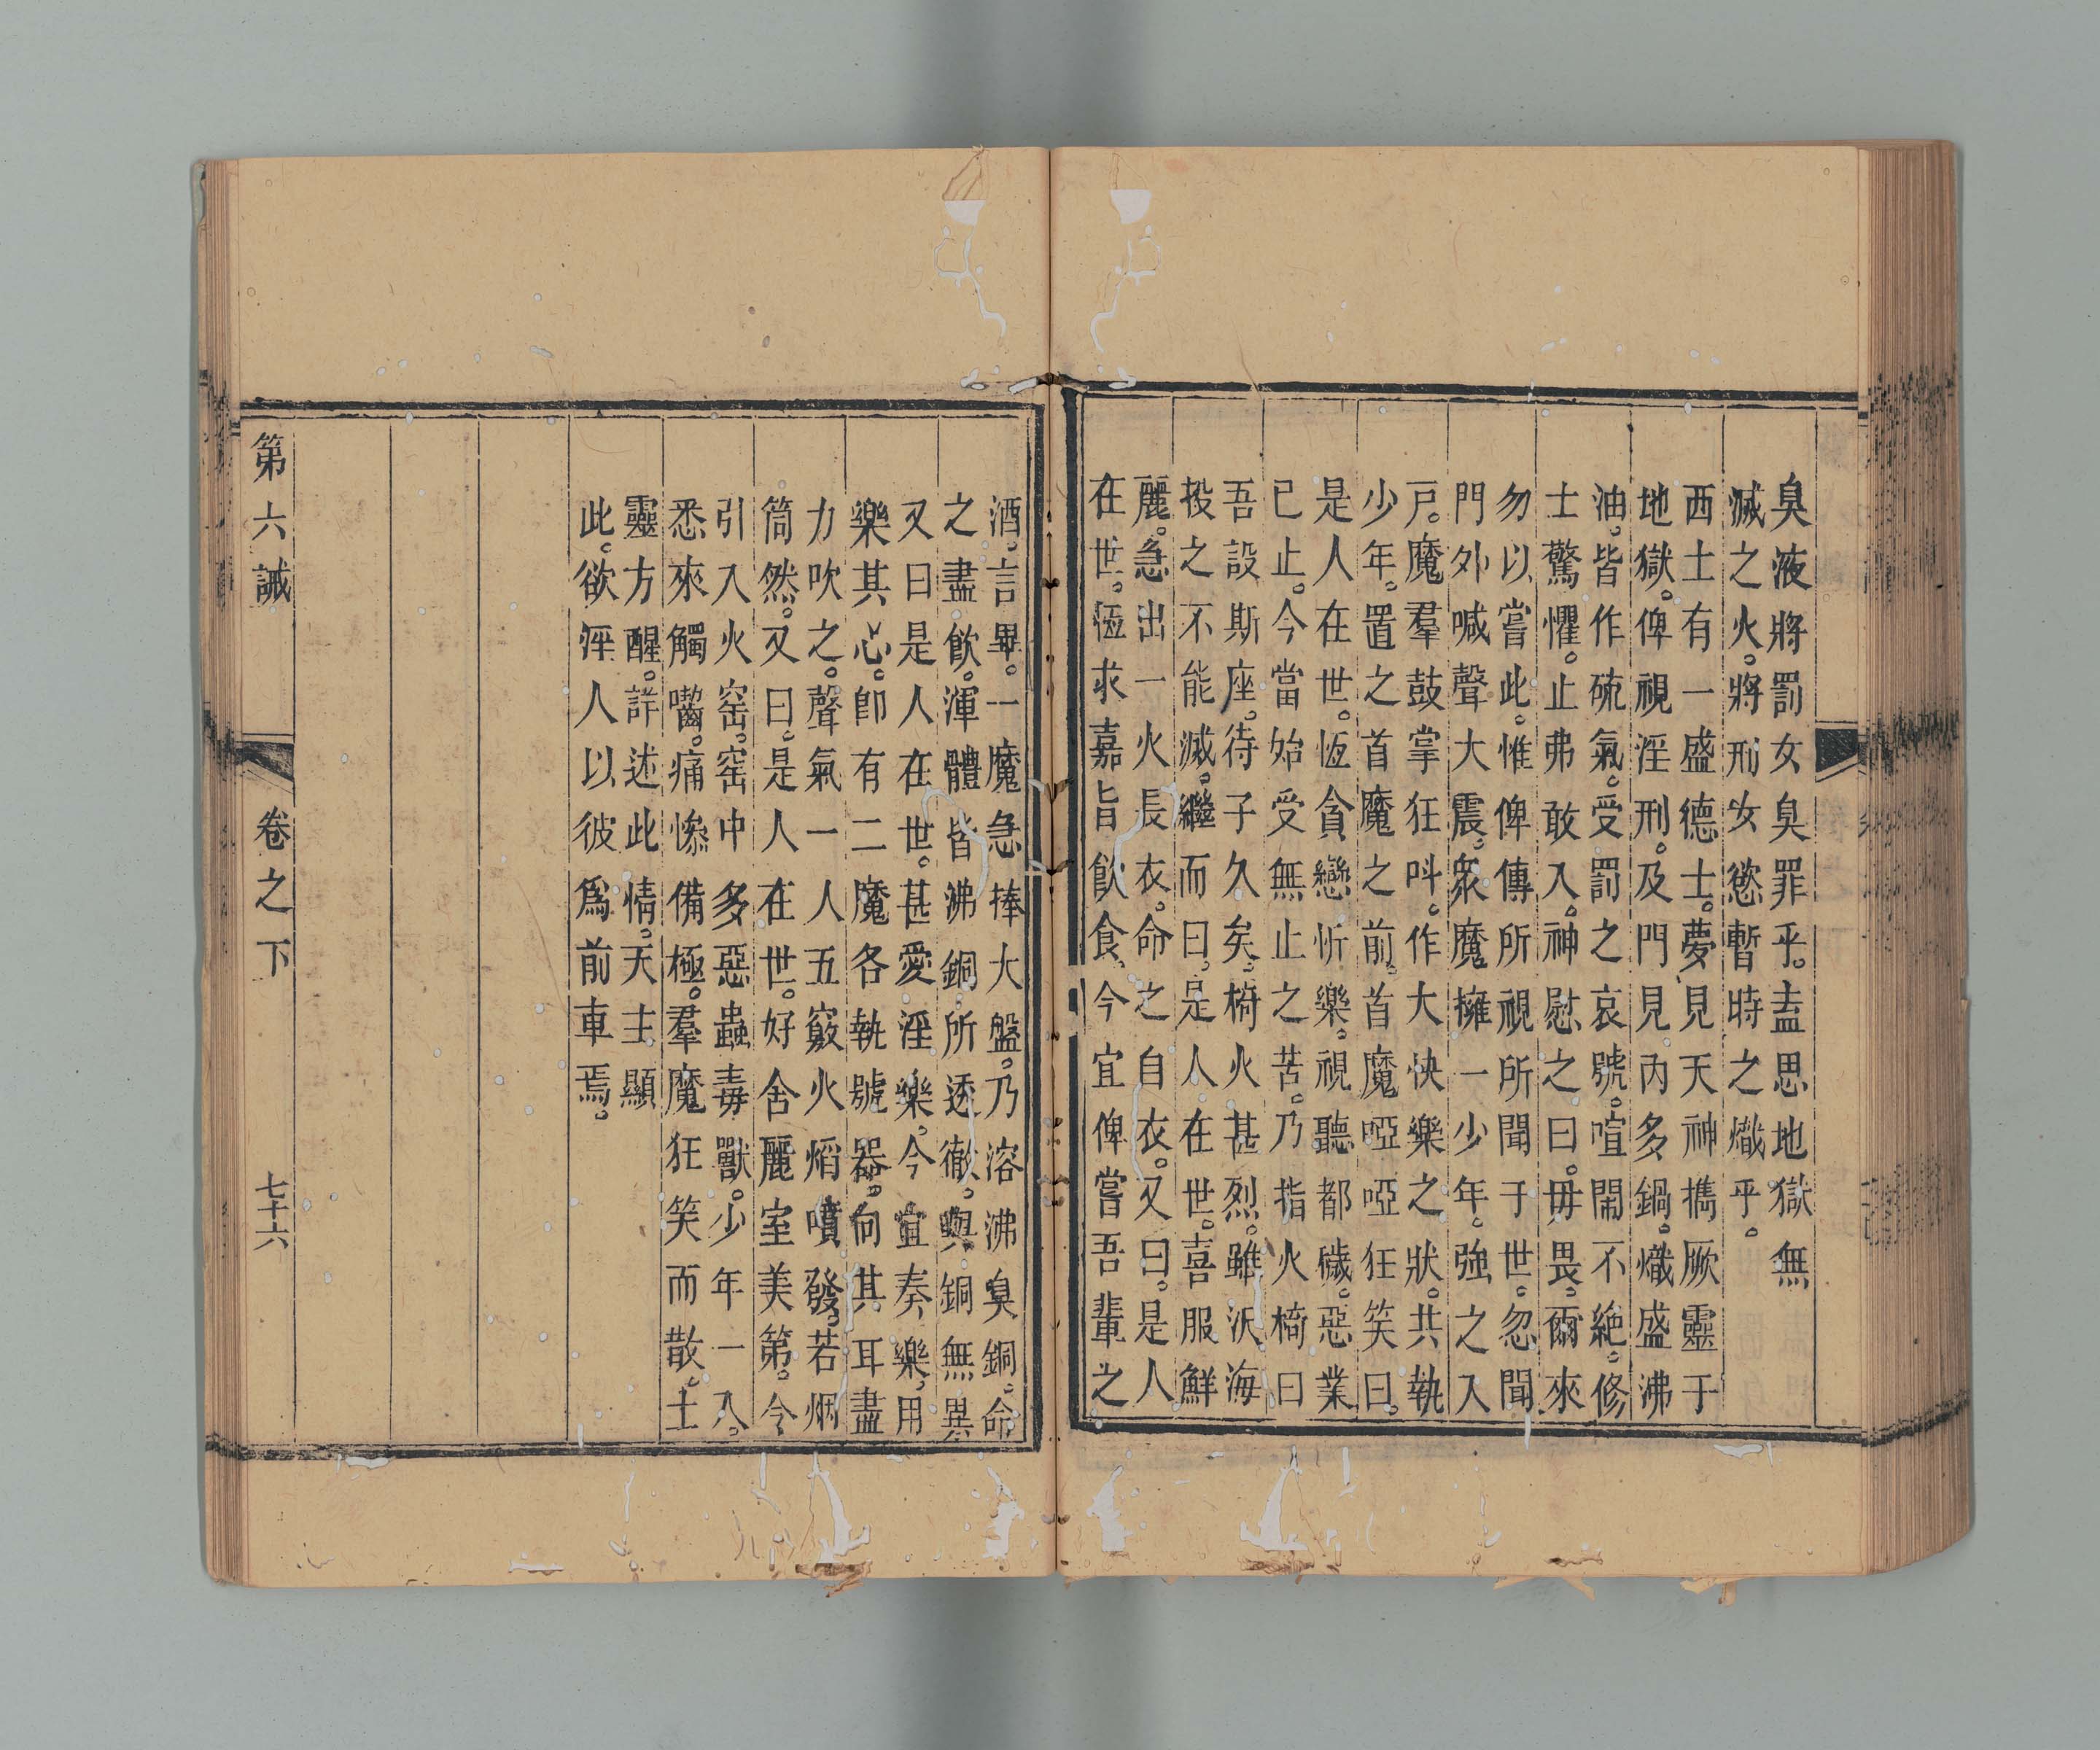 臭液將罰女臭罪乎。盍思地獄無
滅之火。將刑女慾暫時之熾乎。
西士有一盛德士。夢見天神攜厥靈于
地獄。俾視淫刑。及門見內多鍋。熾盛沸
油。皆作硫氣。受罰之哀號。喧鬧不絶。修
士驚懼。止弗敢入。神慰之曰。毋畏。爾來
勿以嘗此。惟俾傳所視所聞于世。忽聞
門外喊聲大震。衆魔擁一少年。強之入
戸。魔羣鼓掌狂呌。作大快樂之狀。共執
少年。置之首魔之前。首魔啞啞狂笑曰。
是人在世。恆貪戀忻樂。視聽都穢。惡業
已止。今當始受無止之苦。乃指火椅曰
吾設斯座。待子久矣。椅火甚烈。雖沃海
投之不能滅。繼而曰。是人在世。喜服鮮
麗。急出一火長衣。命之自衣。又曰。是人
在世。恆求嘉旨飮食、今宜俾嘗吾輩之
酒。言畢。一魔急捧大盤。乃溶沸臭銅。命
之盡飮。渾體皆沸銅所透徹。與銅無異
又曰是人在世。甚愛淫樂。今宜奏樂。用
樂其心。卽有二魔各執號器。向其耳盡
力吹之。聲氣一人五竅火熖噴發。若烟
筒然。又曰。是人在世。好舍麗室美第。今
引入火窑。窑中多惡蟲毒獸。少年一入。
悉來觸嚙。痛慘備極。羣魔狂笑而散。士
靈方醒。詳述此情。天主顯
此。欲淫人以彼爲前車焉。
第六誡 卷之下 七十六